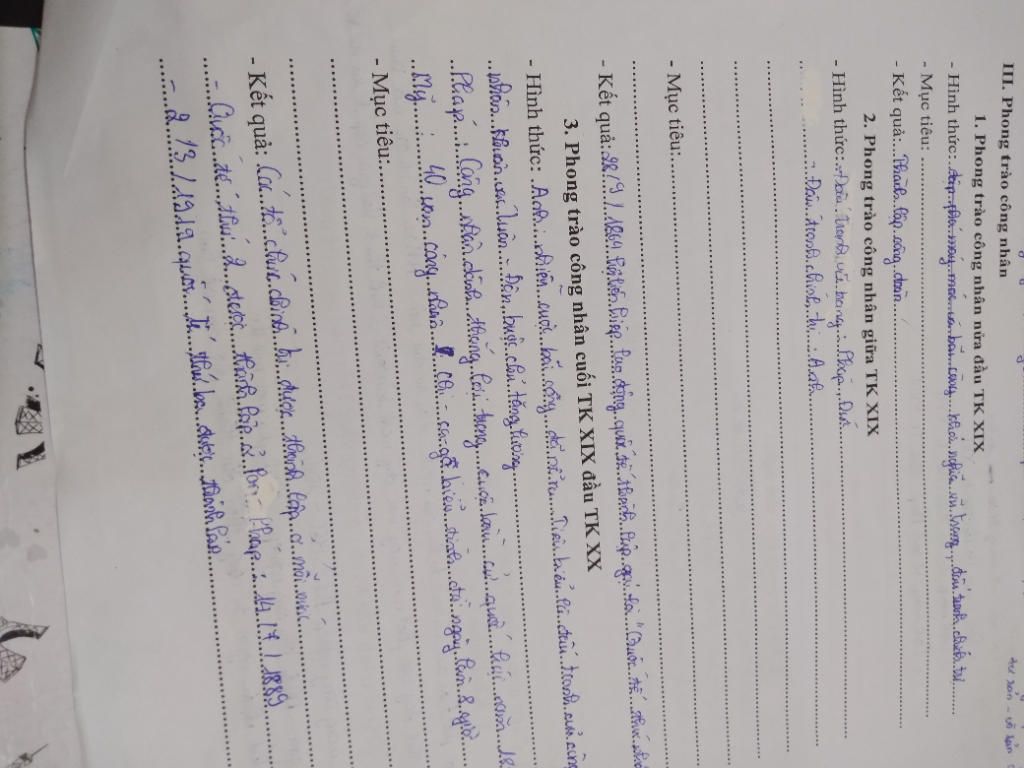 III. Phong trào công nhân
1. Phong trào công nhân nửa đầu TK XIX
- Hình thức: đập phá máy móc và bãi công, khởi nghĩa vũ trang, đấu tranh chính trị
- Mục tiêu:
- Kết quả: Thành lập công đoàn
2. Phong trào công nhân giữa TK XIX
- Hình thức: Đấu tranh vũ trang: Pháp, Đức
- Đấu tranh chính trị: Anh
- Mục tiêu:
- Kết quả: 28/9/1864 hội liên hiệp lao động quốc tế thành lập gọi là "Quốc tế thứ nhất
3. Phong trào công nhân cuối TK XIX đầu TK XX
- Hình thức: Anh: nhiều cuộc bãi công đã nổ ra. Tiêu biểu là đấu tranh của công
nhân khuân vác Luân - Đôn buộc chủ tăng lương
Pháp: Công nhân dành thắng lợi trong cuộc bầu cử quốc hội năm 18
Mỹ: 40 vạn công nhân Chi-ca-gô biểu tình đòi ngày làm 8 giờ
- Mục tiêu:
- Kết quả: Các tổ chức chính trị được thành lập ở mỗi nước
- Quốc tế thứ 2 được thành lập ở Pháp: 14/7/1889
- 2/3/1919 quốc tế thứ ba được thành lập